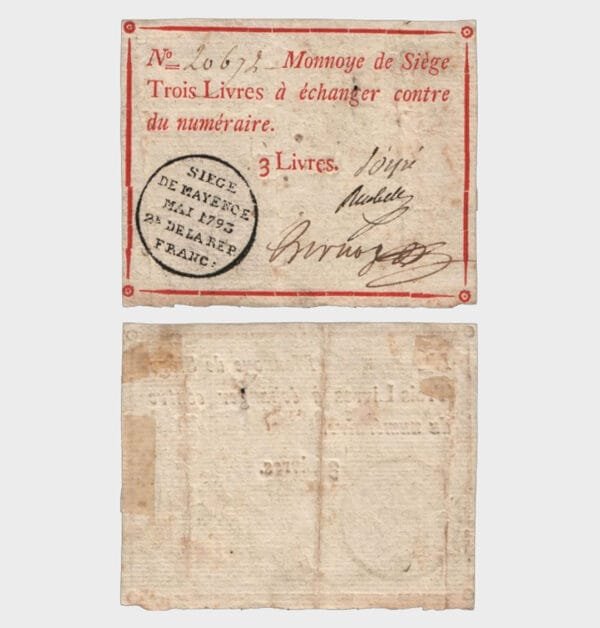 Nº 20672 Monnoye de Siège
Trois Livres à échanger contre
du numéraire.
3 Livres.
SIEGE
DE MAYENCE
MAI 1793
2ᴱ DE LA REP.
FRANC: